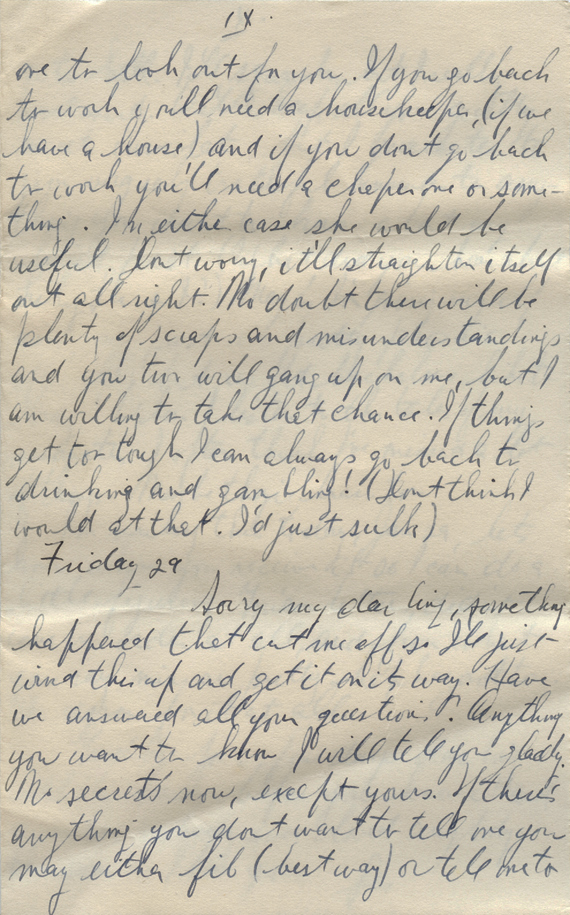 IX.
one to look out for you. If you go back
to work you'll need a housekeeper, (if we
have a house) and if you don't go back
to work you'll need a cheperone or some-
thing. In either case she would be
useful. Dont worry, it'll straighten itself
out all right. No doubt there will be
plenty of scraps and misunderstandings
and you two will gang up on me, but I
am willing to take that chance. If things
get too tough I can always go back to
drinking and gambling! (Dont think I
would at that. I'd just sulk)
Friday 29
Sorry my darling, something
happened that cut me off so I'll just
wind this up and get it on its way. Have
we answered all your questions? Anything
you want to know I will tell you gladly.
No secrets now, except yours. If there's
anything you dont want to tell me you
may either fib (best way) or tell me to